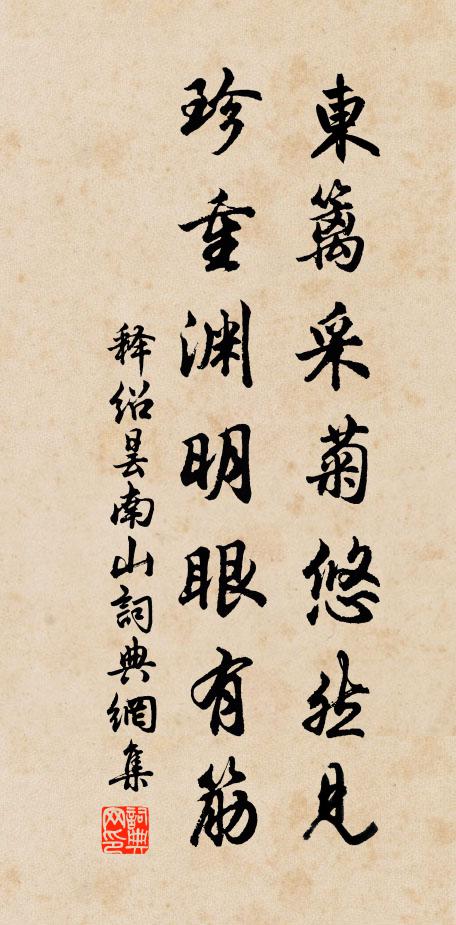 東籬采菊悠然見
珍重渊明眼有筋
释绍昙南山詞典網集
詞典网印